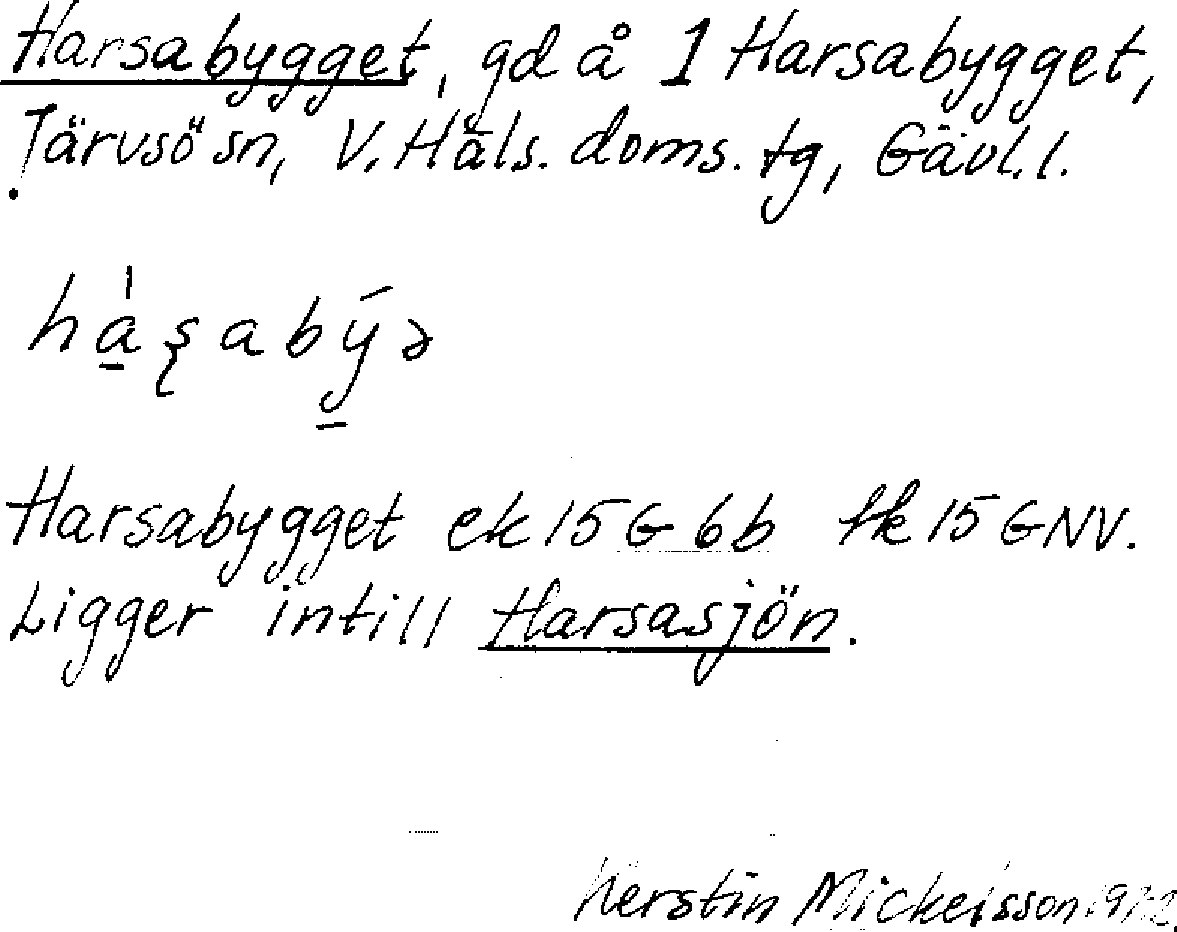 Harsabygget, gd å 1 Harsabygget,
Järvsö sn, V. Häls. doms. tg, Gävl. l.
hàʂabýə
Harsabygget ek 15 G 6b tk 15 G NV.
Ligger intill Harsasjön.
Kerstin Mickelsson 1972.